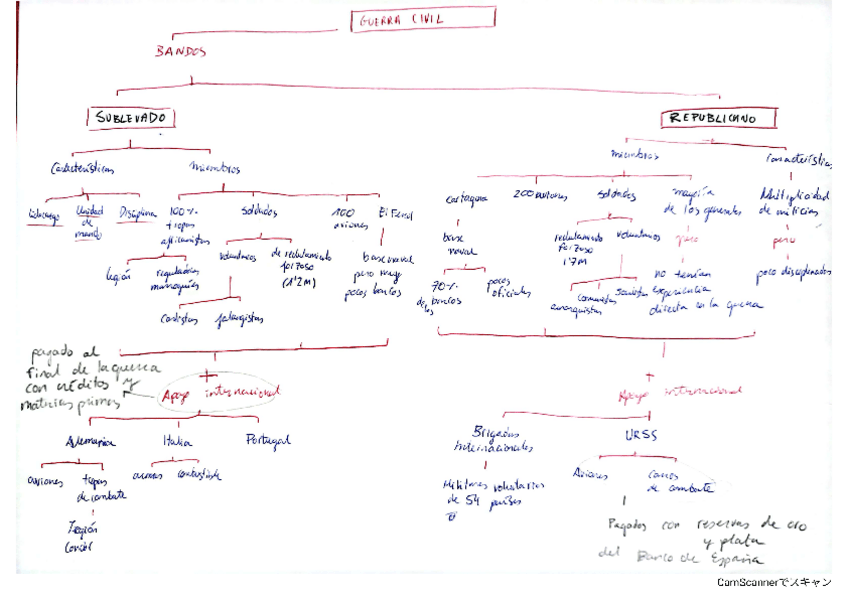 GUERRA CIVIL
BANDOS
SUBLEVADO
REPUBLICANO
Características
miembros
miembros
Característica
Liderazgo
Unidad
de
mando
Disciplina
100%
tropas
africanistas
Soldados
100
aviones
El Ferrol
legión
regulares
marroquíes
voluntarios
de reclutamiento
forzoso
(1'2M)
base naval
pero muy
pocos barcos
Carlistas
falangistas
Cartagena
200 aviones
Soldados
mayoría
de los generales
Multiplicidad
de milicias
base
naval
reclutamiento
forzoso
1'7M
voluntarios
pero
pero
70%
de los barcos
pocos
oficiales
Comunistas
anarquistas
Socialistas
no tenían
experiencia
directa en la guerra
poco disciplinados
pagado al
final de la guerra
con créditos y
materias primas
+
Apoyo internacional
+
Apoyo internacional
Alemania
Italia
Portugal
aviones
tropas
de combate
armas
combustible
Legión
Cóndor
Brigadas
Internacionales
URSS
Militares voluntarios
de 54 países
Aviones
carros
de combate
Pagados con reservas de oro
y plata
del Banco de España
CamScannerでスキャン